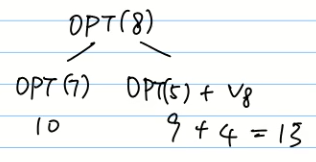 OPT(8)
OPT(7) OPT(5) + V8
10 9 + 4 = 13